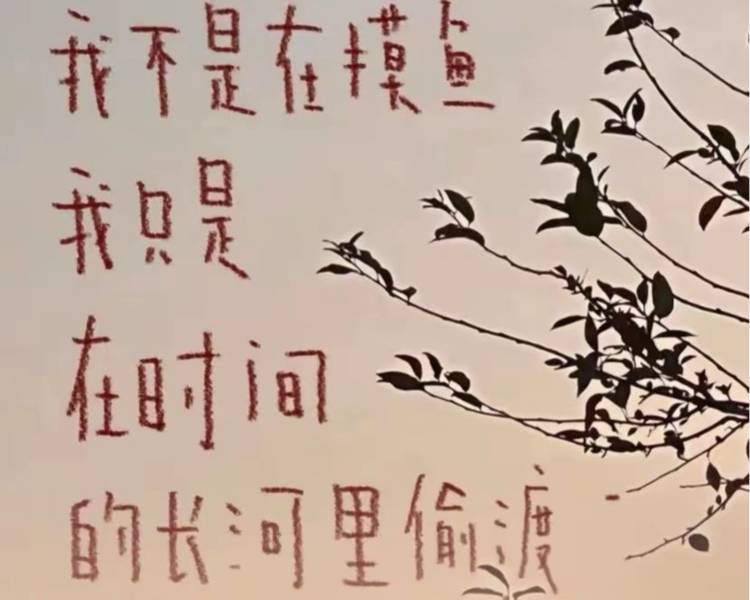 我不是在摸鱼
我只是
在时间
的长河里偷渡